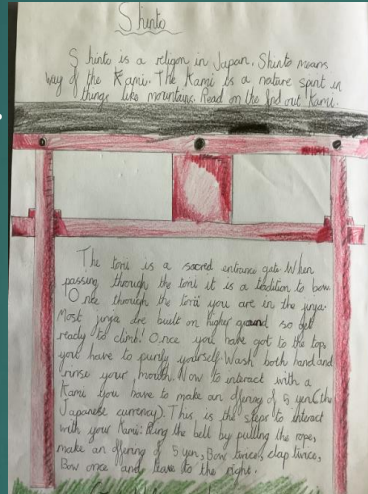 Shinto
Shinto is a religon in Japan. Shinto means
way of the Kami. The Kami is a nature spirit in
things like mountains. Read on the find out Kami.
The torii is a sacred entrance gate. When
passing through the torii it is a tradition to bow.
Once through the torii you are in the jinja.
Most jinja are built on higher ground so get
ready to climb! Once you have got to the top,
you have to purify yourself. Wash both hand and
rinse your mouth. Now to interact with a
Kami you have to make an offering of 5 yen (the
Japanese currency). This is the steps to interact
with your Kami: Ring the bell by pulling the rope,
make an offering of 5 yen, Bow twice, clap twice,
Bow once and leave to the right.